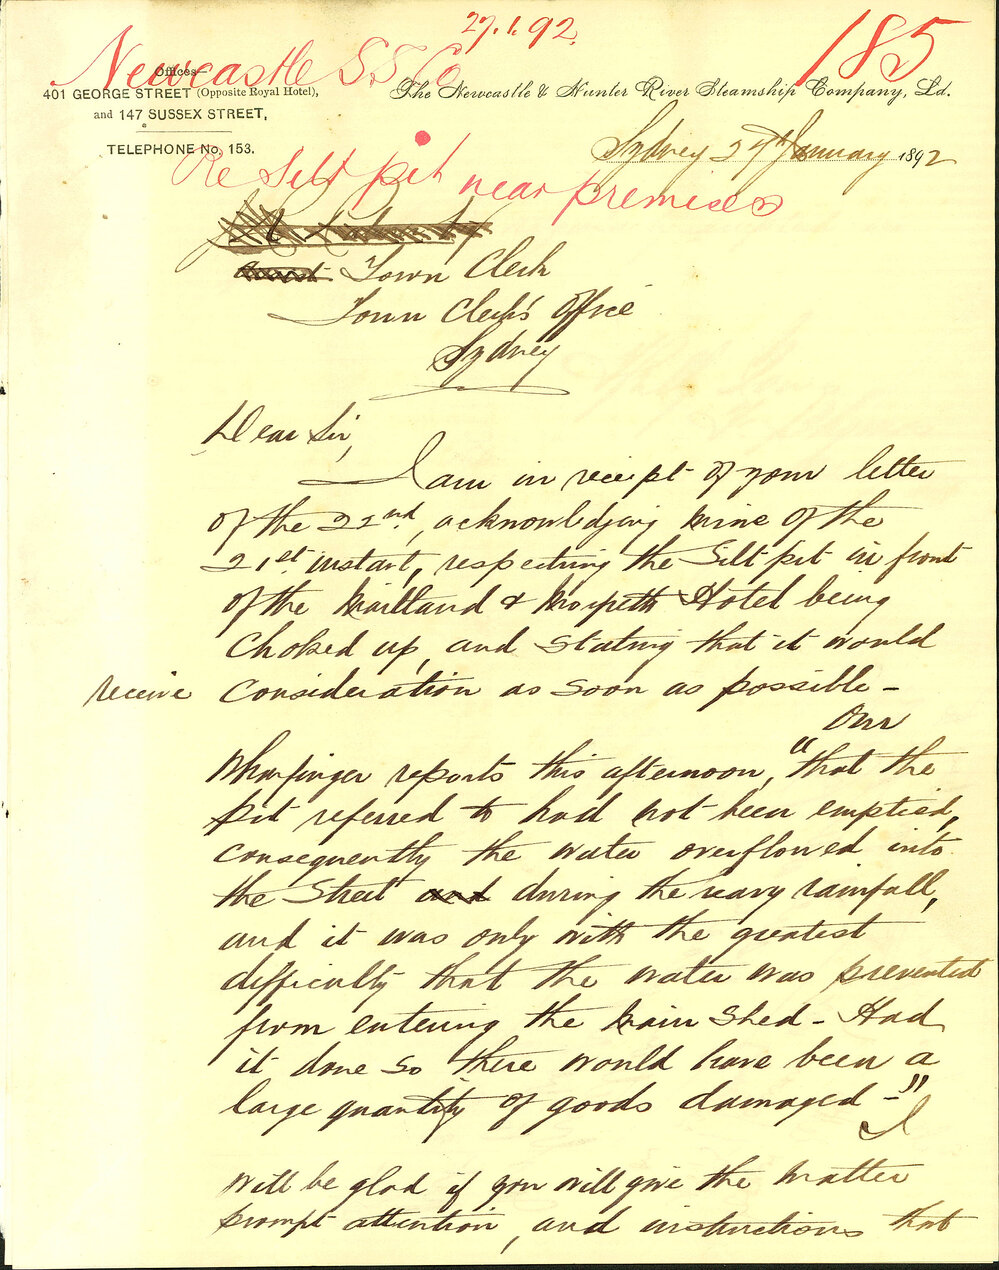 27.1.92.
185
Newcastle S.S. Co
Offices—
401 GEORGE STREET (Opposite Royal Hotel),
and 147 SUSSEX STREET,
TELEPHONE No. 153.
The Newcastle & Hunter River Steamship Company, Ld.
Sydney 27th January 1892
Re Silt pit near premises
Town Clerk
Town Clerk's Office
Sydney
Dear Sir,
I am in receipt of your letter
of the 22nd, acknowledging mine of the
21st instant, respecting the Silt pit in front
of the Maitland & Morpeth Hotel being
choked up, and stating that it would
receive consideration as soon as possible –
Our
Wharfinger reports this afternoon, "that the
pit referred to had not been emptied,
consequently the water overflowed into
the Street and during the heavy rainfall,
and it was only with the greatest
difficulty that the water was prevented
from entering the main Shed – Had
it done so there would have been a
large quantity of goods damaged –"
I
will be glad if you will give the matter
prompt attention, and instructions that